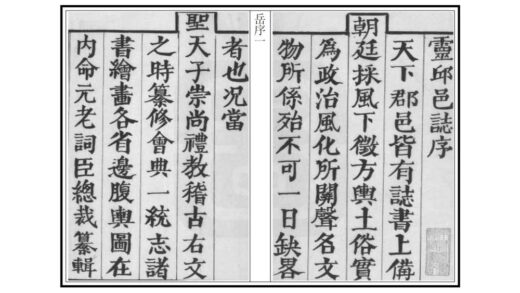 靈邱邑誌序
天下郡邑皆有誌書上備
朝廷採風下徵方輿土俗實
為政治風化所關聲名文
物所係殆不可一日缺畧
岳序一
者也况當
聖天子崇尚禮教稽古右文
之時纂修會典一統志諸
書繪畫各省邊腹輿圖在
內命元老詞臣總裁纂輯